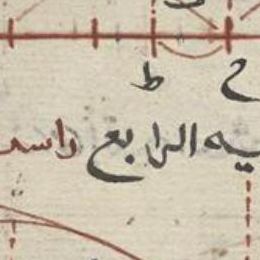 ط ح
ـيه الرابع راسـ